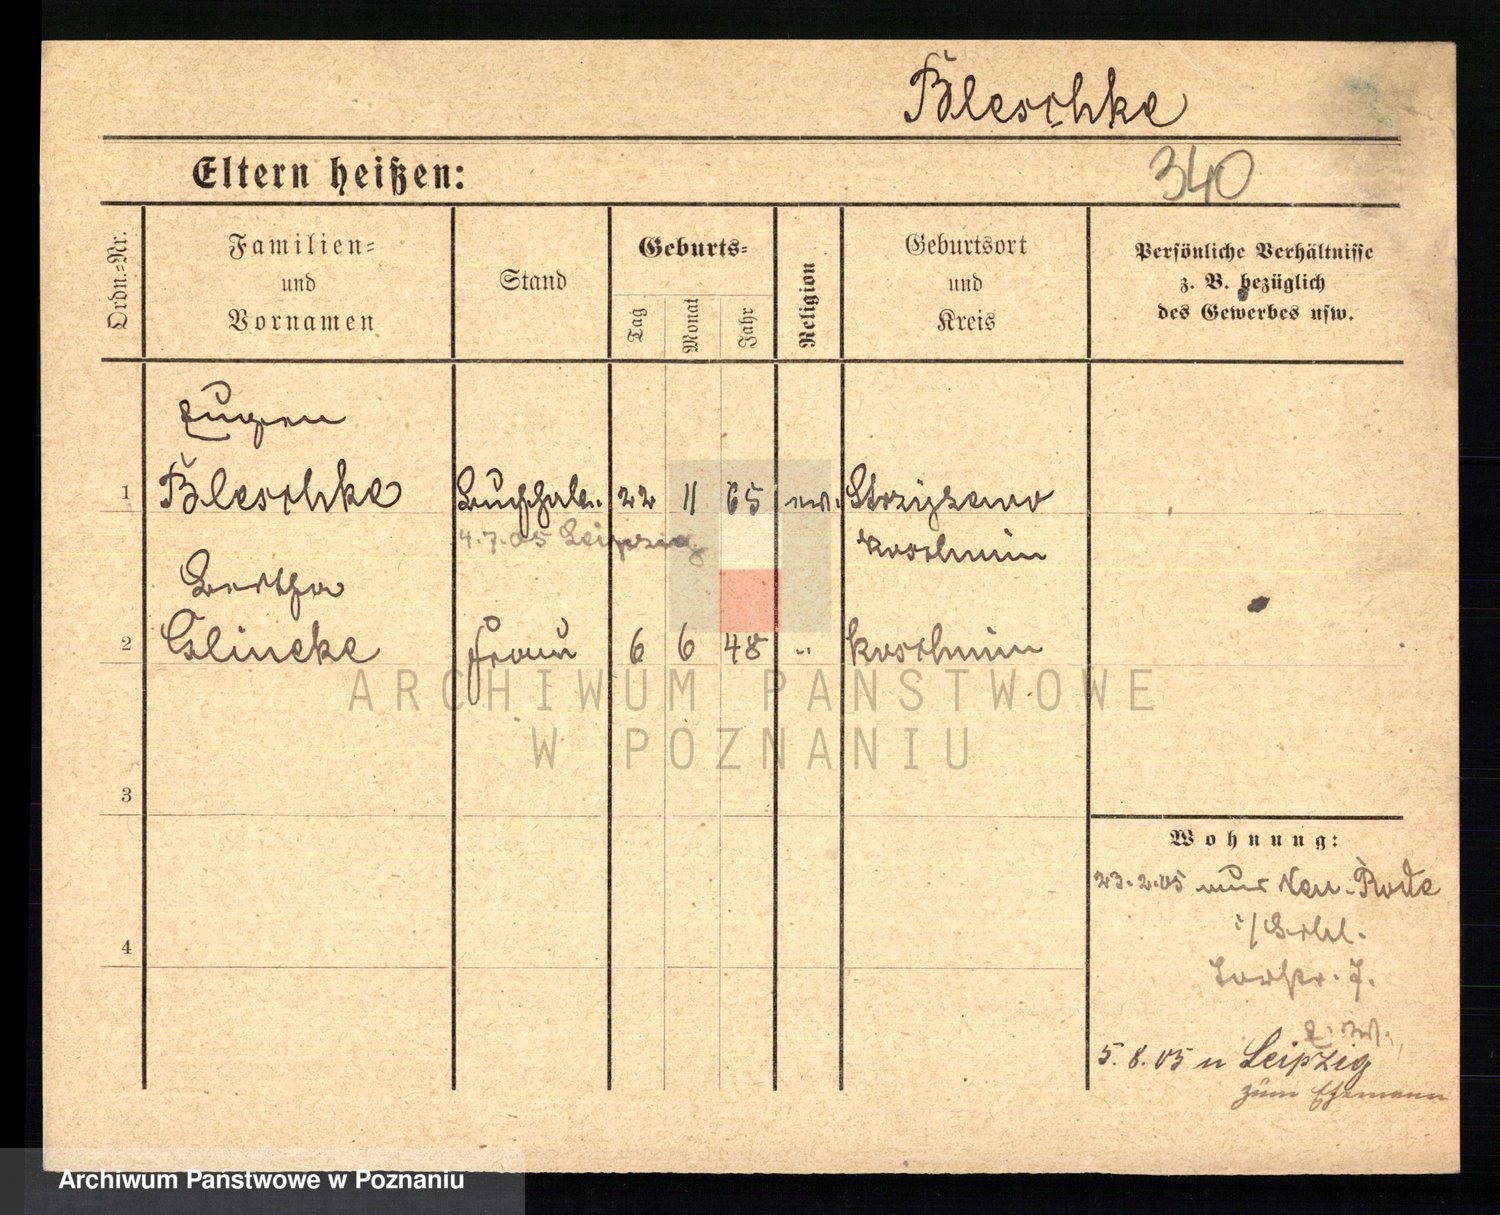 Bleschke
Eltern heißen:
340
Ordn.=Nr.
Familien=
und
Vornamen
Stand
Geburts=
Tag
Monat
Jahr
Religion
Geburtsort
und
Kreis
Persönliche Verhältnisse
z. B. bezüglich
des Gewerbes usw.
Eugen
1 Bleschke Buchhalt. 22 11 65 ev. Strzyzewo
4.7.05 Leipzig
Koschmin
Bertha
2 Glineke Frau 6 6 48 " Koschmin
ARCHIWUM PAŃSTWOWE
W POZNANIU
3
Wohnung:
23.2.05 Neu-Rode
4
5.8.05 n Leipzig
zum Ehemann
Archiwum Państwowe w Poznaniu